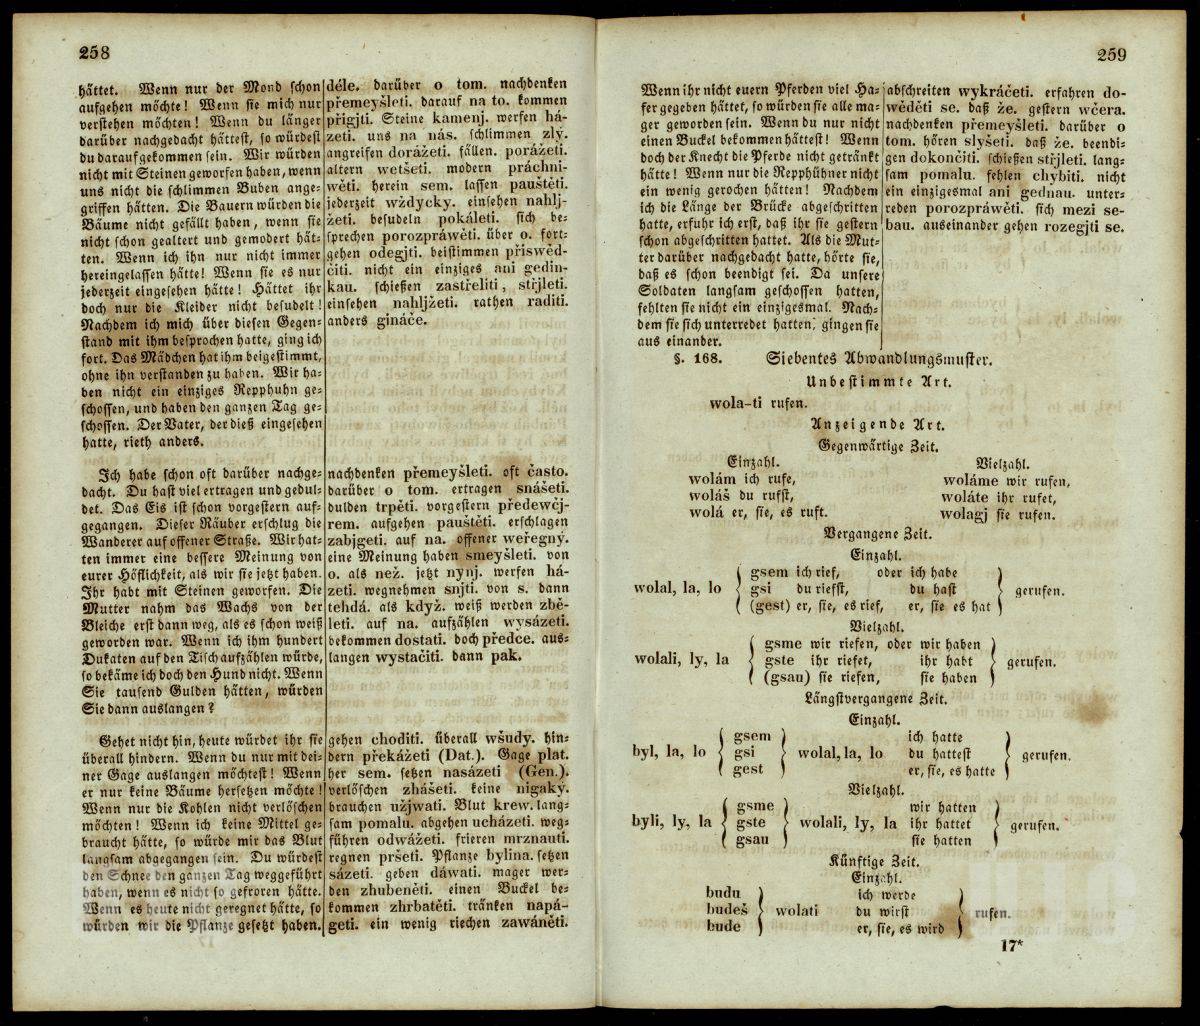 258
hättet. Wenn nur der Mond schon
aufgehen möchte! Wenn sie mich nur
verstehen möchten! Wenn du länger
darüber nachgedacht hättest, so würdest
du darauf gekommen sein. Wir würden
nicht mit Steinen geworfen haben, wenn
uns nicht die schlimmen Buben ange-
griffen hätten. Die Bauern würden die
Bäume nicht gefällt haben, wenn sie
nicht schon gealtert und gemodert hät-
ten. Wenn ich ihn nur nicht immer
hereingelassen hätte! Wenn sie es nur
jederzeit eingesehen hätte! Hättet ihr
doch nur die Kleider nicht besudelt!
Nachdem ich mich über diesen Gegen-
stand mit ihm besprochen hatte, ging ich
fort. Das Mädchen hat ihm beigestimmt,
ohne ihn verstanden zu haben. Wir ha-
ben nicht ein einziges Repphuhn ge-
schossen, und haben den ganzen Tag ge-
schossen. Der Vater, der dieß eingesehen
hatte, rieth anders.
déle. darüber o tom. nachdenken
přemeyšleti. darauf na to. kommen
přigjti. Steine kamenj. werfen há-
zeti. uns na nás. schlimmen zlý.
angreifen dorážeti. fällen. porážeti.
altern wetšeti. modern práchni-
wěti. herein sem. lassen pauštěti.
jederzeit wždycky. einsehen nahlj-
žeti. besudeln pokáleti. sich be-
sprechen porozpráwěti. über o. fort-
gehen odegjti. beistimmen přiswěd-
čiti. nicht ein einziges ani gedin-
kau. schießen zastřeliti, střjleti.
einsehen nahljžeti. rathen raditi.
anders gináče.
Ich habe schon oft darüber nachge-
dacht. Du hast viel ertragen und gedul-
det. Das Eis ist schon vorgestern auf-
gegangen. Dieser Räuber erschlug die
Wanderer auf offener Straße. Wir hat-
ten immer eine bessere Meinung von
eurer Höflichkeit, als wir sie jetzt haben.
Ihr habt mit Steinen geworfen. Die
Mutter nahm das Wachs von der
Bleiche erst dann weg, als es schon weiß
geworden war. Wenn ich ihm hundert
Dukaten auf den Tisch aufzählen würde,
so bekäme ich doch den Hund nicht. Wenn
Sie tausend Gulden hätten, würden
Sie dann auslangen?
nachdenken přemeyšleti. oft často.
darüber o tom. ertragen snášeti.
dulden trpěti. vorgestern předewčj-
rem. aufgehen pauštěti. erschlagen
zabjgeti. auf na. offener weřegný.
eine Meinung haben smeyšleti. von
o. als než. jetzt nynj. werfen há-
zeti. wegnehmen snjti. von s. dann
tehdá. als když. weiß werden zbě-
leti. auf na. aufzählen wysázeti.
bekommen dostati. doch předce. aus-
langen wystačiti. dann pak.
Gehet nicht hin, heute würdet ihr sie
überall hindern. Wenn du nur mit dei-
ner Gage auslangen möchtest! Wenn
er nur keine Bäume hersetzen möchte!
Wenn nur die Kohlen nicht verlöschen
möchten! Wenn ich keine Mittel ge-
braucht hätte, so würde mir das Blut
langsam abgegangen sein. Du würdest
den Schnee den ganzen Tag weggeführt
haben, wenn es nicht so gefroren hätte.
Wenn es heute nicht geregnet hätte, so
würden wir die Pflanze gesetzt haben.
gehen choditi. überall wšudy. hin-
dern překážeti (Dat.). Gage plat.
her sem. setzen nasázeti (Gen.).
verlöschen zhášeti. keine nigaký.
brauchen užjwati. Blut krew. lang-
sam pomalu. abgehen ucházeti. weg-
führen odwážeti. frieren mrznauti.
regnen pršeti. Pflanze bylina. setzen
sázeti. geben dáwati. mager wer-
den zhubeněti. einen Buckel be-
kommen zhrbatěti. tränken napá-
geti. ein wenig riechen zawáněti.
259
Wenn ihr nicht euern Pferden viel Ha-
fer gegeben hättet, so würden sie alle ma-
ger geworden sein. Wenn du nur nicht
einen Buckel bekommen hättest! Wenn
doch der Knecht die Pferde nicht getränkt
hätte! Wenn nur die Repphühner nicht
ein wenig gerochen hätten! Nachdem
ich die Länge der Brücke abgeschritten
hatte, erfuhr ich erst, daß ihr sie gestern
schon abgeschritten hattet. Als die Mut-
ter darüber nachgedacht hatte, hörte sie,
daß es schon beendigt sei. Da unsere
Soldaten langsam geschossen hatten,
fehlten sie nicht ein einzigesmal. Nach-
dem sie sich unterredet hatten, gingen sie
aus einander.
abschreiten wykráčeti. erfahren do-
wěděti se. daß že. gestern wčera.
nachdenken přemeyšleti. darüber o
tom. hören slyšeti. daß že. beendi-
gen dokončiti. schießen střjleti. lang-
sam pomalu. fehlen chybiti. nicht
ein einzigesmal ani gednau. unter-
reden porozpráwěti. sich mezi se-
bau. auseinander gehen rozegjti se.
§. 168. Siebentes Abwandlungsmuster.
Unbestimmte Art.
wola-ti rufen.
Anzeigende Art.
Gegenwärtige Zeit.
Einzahl. Vielzahl.
wolám ich rufe, woláme wir rufen,
woláš du rufst, woláte ihr rufet,
wolá er, sie, es ruft. wolagj sie rufen.
Vergangene Zeit.
Einzahl.
gsem ich rief, oder ich habe
wolal, la, lo gsi du riefst, du hast gerufen.
(gest) er, sie, es rief, er, sie es hat
Vielzahl.
gsme wir riefen, oder wir haben
wolali, ly, la gste ihr riefet, ihr habt gerufen.
(gsau) sie riefen, sie haben
Längstvergangene Zeit.
Einzahl.
gsem ich hatte
byl, la, lo gsi wolal, la, lo du hattest gerufen.
gest er, sie, es hatte
Vielzahl.
gsme wir hatten
byli, ly, la gste wolali, ly, la ihr hattet gerufen.
gsau sie hatten
Künftige Zeit.
Einzahl.
budu ich werde
budeš wolati du wirst rufen.
bude er, sie, es wird
17*